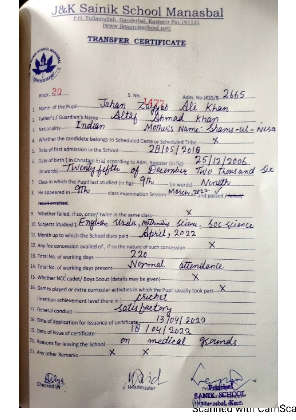 J&K Sainik School Manasbal
P.O. Tullamullah, Ganderbal, Kashmir Pin.191131
TRANSFER CERTIFICATE
Book 29 S. No. 1477 Adm. No JKSS/B- 2665
1. Name of the Pupil Jahan Zaffar Ali Khan
2. Father's / Guardian's Name Altaf Ahmad Khan
3. Nationality Indian Mother's Name: Shams-ul-Nisa
4. Whether the candidate belongs to Scheduled Caste or Scheduled Tribe X
5. Date of first admission in the School 28/05/2018
6. Date of birth (in Christian Era) according to Adm. Register (in fig) 25/12/2006
(in words) Twenty fifth of December Two Thousand Six
7. Class in which the Pupil last studied (in fig) 9th (in words) Nineth
8. He appeared in 9th class examination Session March, 2022 and passed
9. Whether failed, if so, once/ twice in the same class X
10. Subjects Studied English, Urdu, Mathmatics, Science, Soc. science
11. Month up to which the School dues paid April, 2022
12. Any fee concession availed of, if so the nature of such concession X
13. Total No. of working days 220
14. Total No. of working days present Normal attendance
15. Whether NCC cadet/ Boys Scout (details may be given) X
16. Games played or extra curricular activities in which the Pupil usually took part X
(mention achievement level there in) cricket
17. General conduct satisfactory
18. Date of application for issuance of certificate 13/04/2022
19. Date of issue of certificate 18/04/2022
20. Reasons for leaving the School on medical grounds
21. Any other Remarks X X
Checked by Headmaster Principal
SAINIK SCHOOL
Manasbal, Kash.
Scanned with CamSca